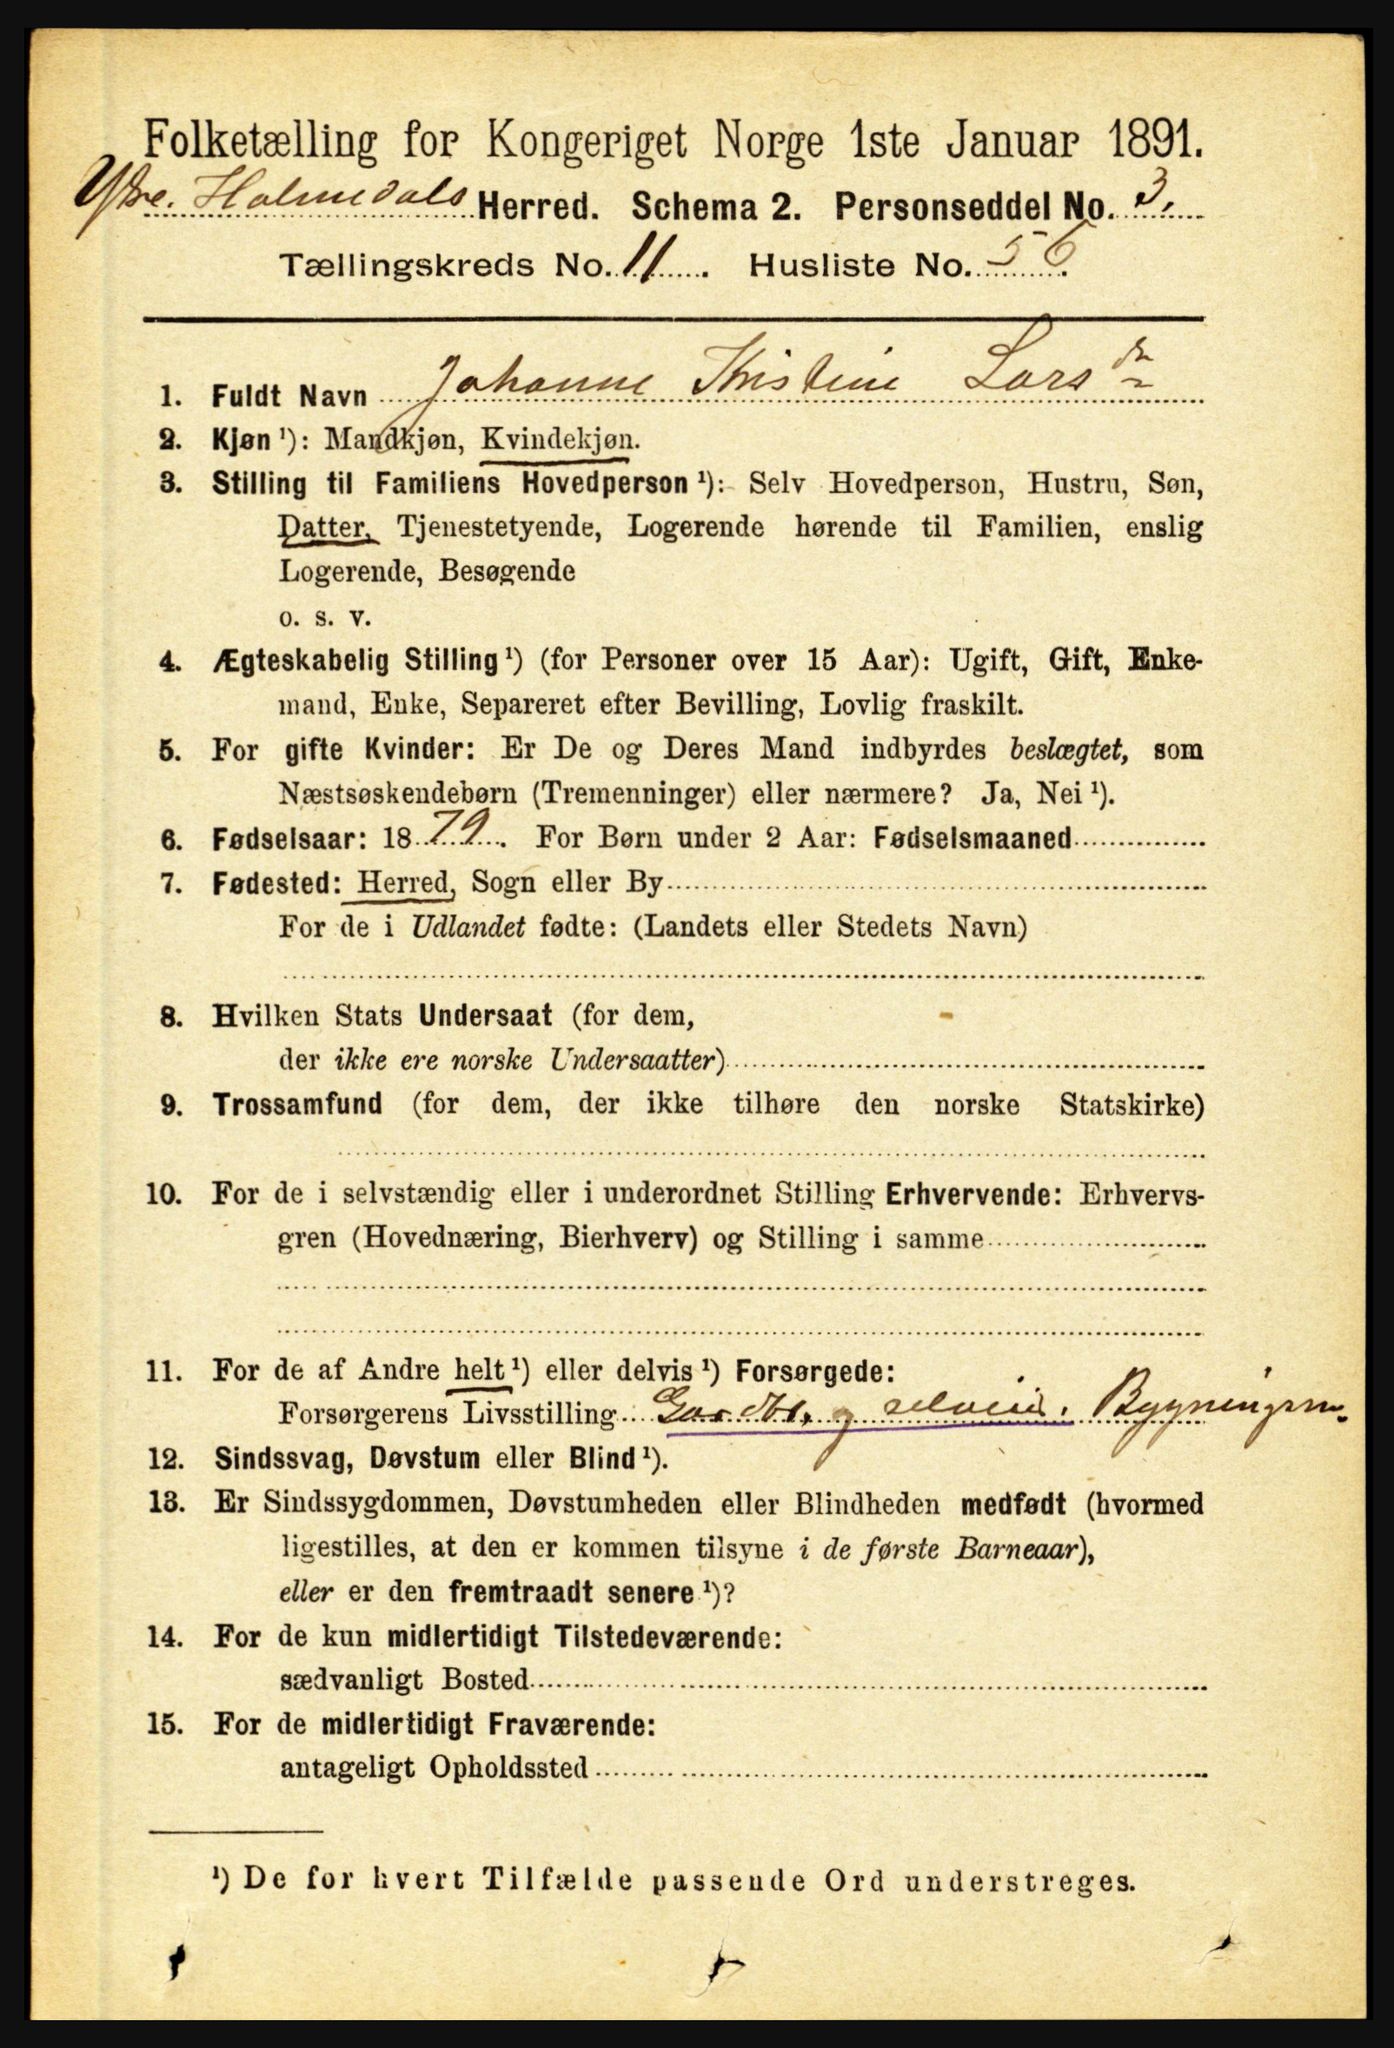 Folketælling for Kongeriget Norge 1ste Januar 1891.
Ytre Holmedals Herred. Schema 2. Personseddel No. 3.
Tællingskreds No. 11. Husliste No. 56.
1. Fuldt Navn Johanne Kristine Larsdr
2. Kjøn ¹): Mandkjøn, Kvindekjøn.
3. Stilling til Familiens Hovedperson ¹): Selv Hovedperson, Hustru, Søn,
Datter, Tjenestetyende, Logerende hørende til Familien, enslig
Logerende, Besøgende
o. s. v.
4. Ægteskabelig Stilling ¹) (for Personer over 15 Aar): Ugift, Gift, Enke-
mand, Enke, Separeret efter Bevilling, Lovlig fraskilt.
5. For gifte Kvinder: Er De og Deres Mand indbyrdes beslægtet, som
Næstsøskendebørn (Tremenninger) eller nærmere? Ja, Nei ¹).
6. Fødselsaar: 1879. For Børn under 2 Aar: Fødselsmaaned
7. Fødested: Herred, Sogn eller By
For de i Udlandet fødte: (Landets eller Stedets Navn)
8. Hvilken Stats Undersaat (for dem,
der ikke ere norske Undersaatter)
9. Trossamfund (for dem, der ikke tilhøre den norske Statskirke)
10. For de i selvstændig eller i underordnet Stilling Erhvervende: Erhvervs-
gren (Hovednæring, Bierhverv) og Stilling i samme
11. For de af Andre helt ¹) eller delvis ¹) Forsørgede:
Forsørgerens Livsstilling Gardbr. og selveier. Bygningsm.
12. Sindssvag, Døvstum eller Blind ¹).
13. Er Sindssygdommen, Døvstumheden eller Blindheden medfødt (hvormed
ligestilles, at den er kommen tilsyne i de første Barneaar),
eller er den fremtraadt senere ¹)?
14. For de kun midlertidigt Tilstedeværende:
sædvanligt Bosted
15. For de midlertidigt Fraværende:
antageligt Opholdssted
¹) De for hvert Tilfælde passende Ord understreges.